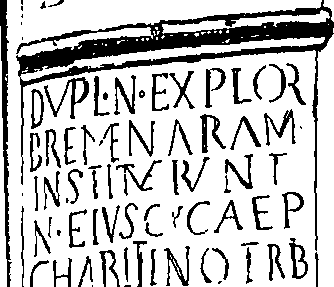 DVPL·N·EXPLOR
BREMEN ARAM
INSTITVERVNT
N·EIVS C·CAEP
CHARITINO TRB